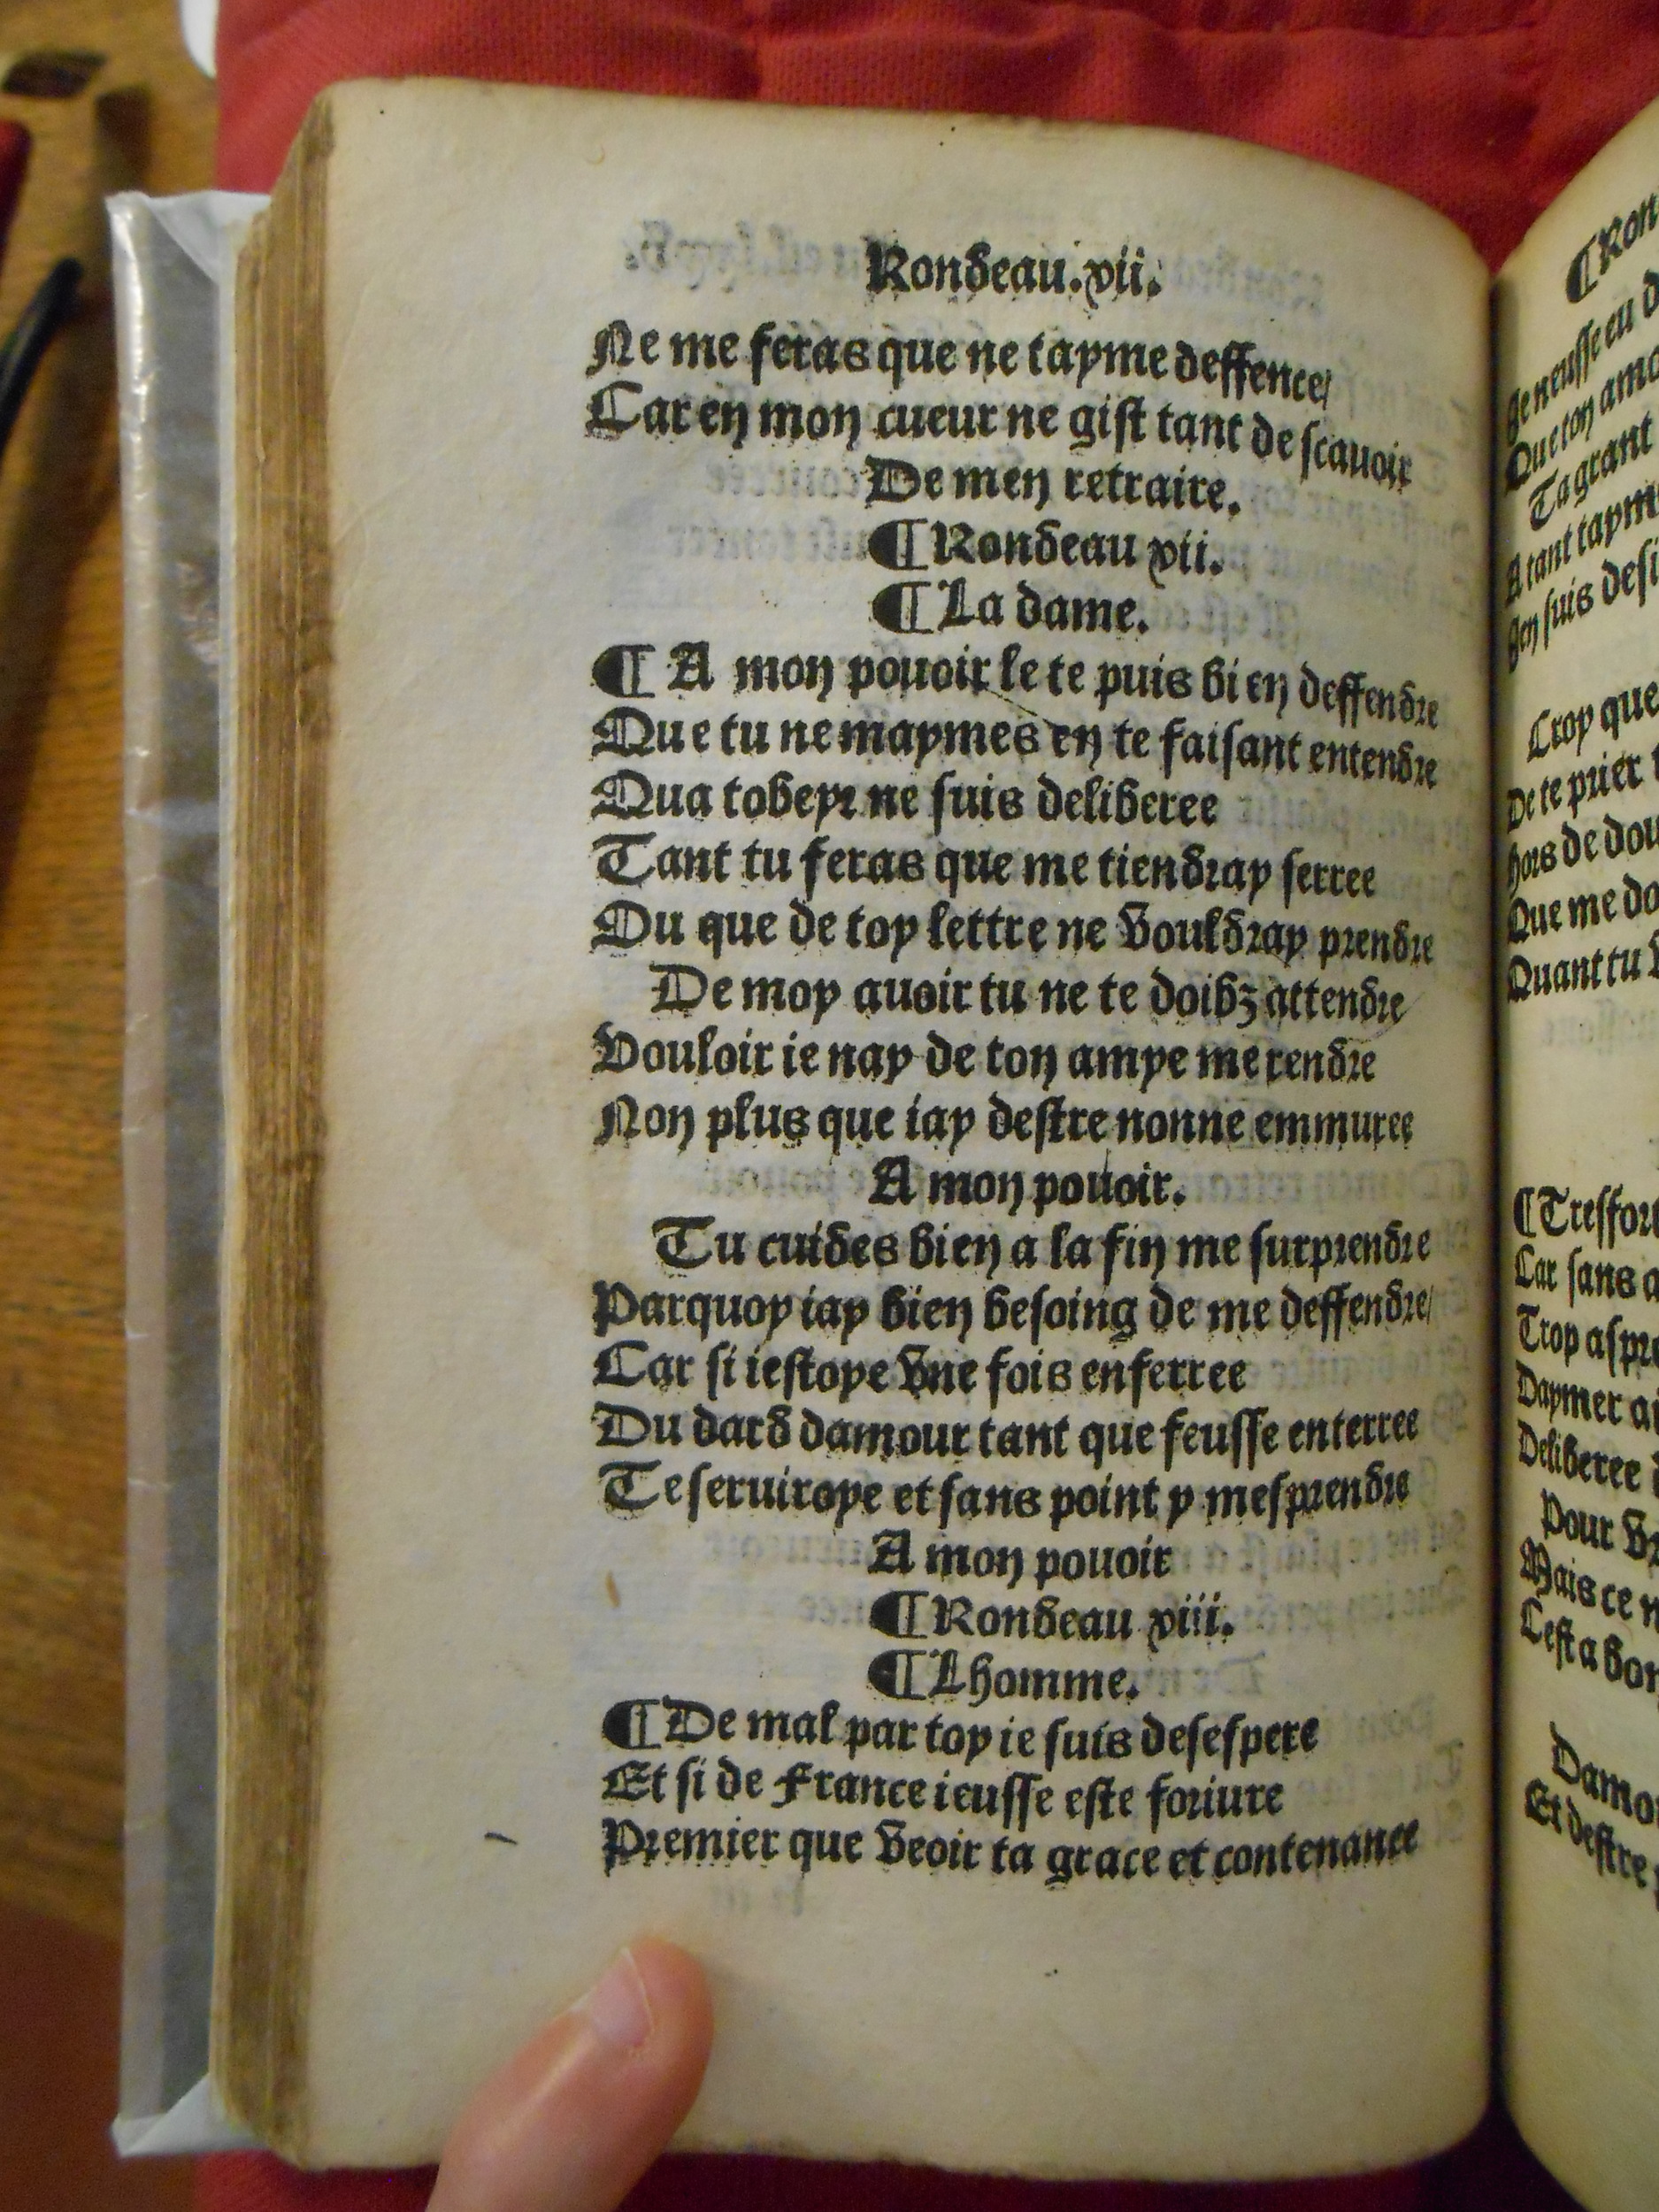 Rondeau.vii.
Ne me feras que ne tayme deffence/
Car en mon cueur ne gist tant de scauoir
De men retraire.
¶ Rondeau vii.
¶ La dame.
¶ A mon pouoir le te puis bien deffendre
Que tu ne maymes en te faisant entendre
Qua tobeyr ne suis deliberee
Tant tu feras que me tiendray serree
Ou que de toy lettre ne vouldray prendre
De moy auoir tu ne te doibz attendre
Vouloir ie nay de ton amye me rendre
Non plus que iay destre nonne emmuree
A mon pouoir.
Tu cuides bien a la fin me surprendre
Parquoy iay bien besoing de me deffendre/
Car si iestoye vne fois enferree
Du dard damour tant que feusse enterree
Te seruiroye et sans point y mesprendre
A mon pouoir
¶ Rondeau viii.
¶ Lhomme.
¶ De mal par toy ie suis desespere
Et si de France ieusse este foriure
Premier que veoir ta grace et contenance
¶ Ron
Ie neusse eu d
Que ton amo
Ta grant
A tant tayme
Ien suis desi
Trop que
De te prier t
hors de dou
Que me do
Quant tu v
¶ Tresfort
Car sans a
Trop aspre
Daymer ai
Deliberee d
Pour vr
Mais ce n
Cest a bon
Damo
Et destre